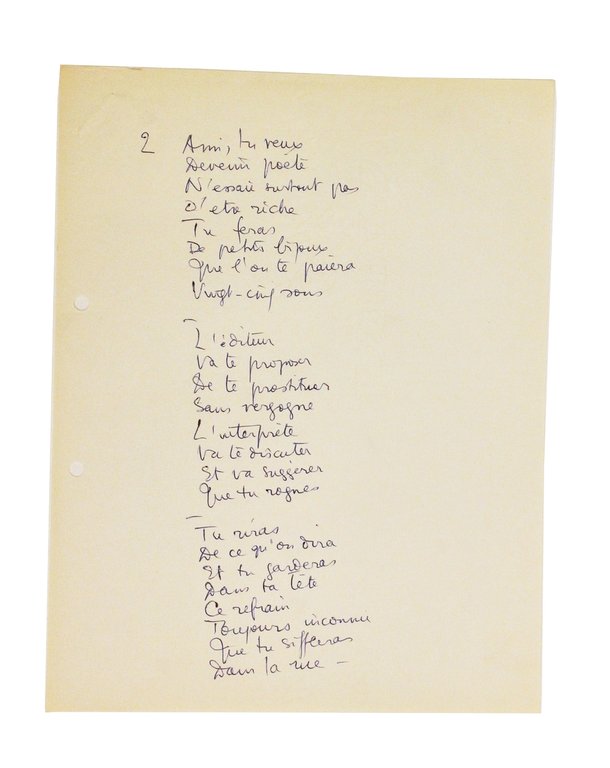 2 Ami, tu veux
Devenir poète
N'essaie surtout pas
D'etre riche
Tu feras
De petits bijoux
Que l'on te paiera
Vingt-cinq sous
—
L'éditeur
Va te proposer
De te prostituer
Sans vergogne
L'interprète
Va te discuter
Et va suggérer
Que tu rognes
—
Tu riras
De ce qu'on dira
Et tu garderas
Dans ta tête
Ce refrain
Toujours inconnu
Que tu siffleras
Dans la rue —